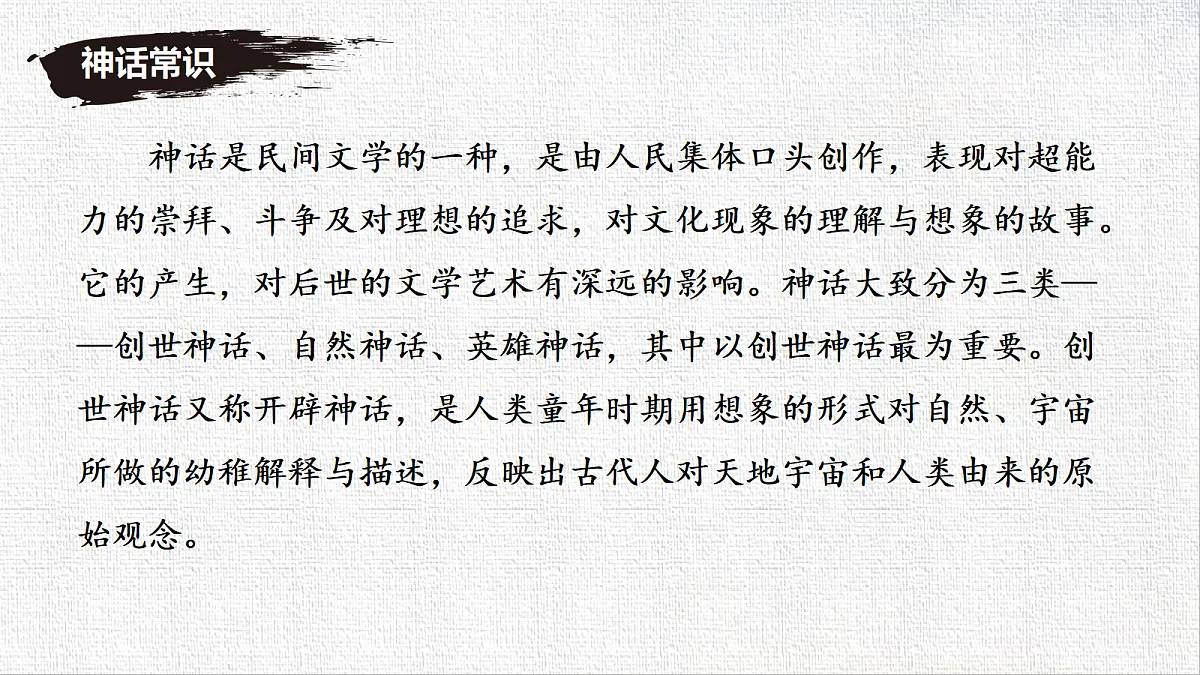 神话常识
神话是民间文学的一种，是由人民集体口头创作，表现对超能
力的崇拜、斗争及对理想的追求，对文化现象的理解与想象的故事。
它的产生，对后世的文学艺术有深远的影响。神话大致分为三类—
—创世神话、自然神话、英雄神话，其中以创世神话最为重要。创
世神话又称开辟神话，是人类童年时期用想象的形式对自然、宇宙
所做的幼稚解释与描述，反映出古代人对天地宇宙和人类由来的原
始观念。